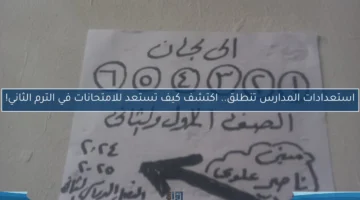 الى لجان
١ ٢ ٣ ٤ ٥ ٦
استعدادات المدارس تنطلق.. اكتشف كيف تستعد للامتحانات في الترم الثاني!
الصف الأول والثاني
٢٠٢٤
٢٠٢٥
مبنى
ناصر علوى
الفصل الدراسى الثانى